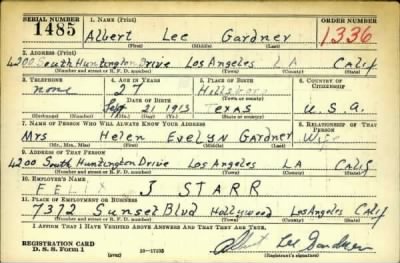 SERIAL NUMBER 1. NAME (Print) ORDER NUMBER
1485 Albert Lee Gardner 1336
(First) (Middle) (Last)
2. ADDRESS (Print)
4200 South Huntington Drive Los Angeles LA Calif
(Number and street or R. F. D. number) (Town) (County) (State)
3. TELEPHONE 4. AGE IN YEARS 5. PLACE OF BIRTH 6. COUNTRY OF CITIZENSHIP
none 27 Hillsboro
DATE OF BIRTH (Town or county)
Sept 21 1913 Texas U.S.a.
(Exchange) (No.) (Mo.) (Day) (Yr.) (State or country)
7. NAME OF PERSON WHO WILL ALWAYS KNOW YOUR ADDRESS 8. RELATIONSHIP OF THAT PERSON
Mrs Helen Evelyn Gardner Wife
(Mr., Mrs., Miss) (First) (Middle) (Last)
9. ADDRESS OF THAT PERSON
4200 South Huntington Drive Los Angeles LA Calif
(Number and street or R. F. D. number) (Town) (County) (State)
10. EMPLOYER'S NAME
FELIX J STARR
11. PLACE OF EMPLOYMENT OR BUSINESS
7372 Sunset Blvd Hollywood Los Angeles Calif
(Number and street or R. F. D. number) (Town) (County) (State)
I AFFIRM THAT I HAVE VERIFIED ABOVE ANSWERS AND THAT THEY ARE TRUE.
REGISTRATION CARD
D. S. S. Form 1 Albert Lee Gardner
(over) (Registrant's signature)